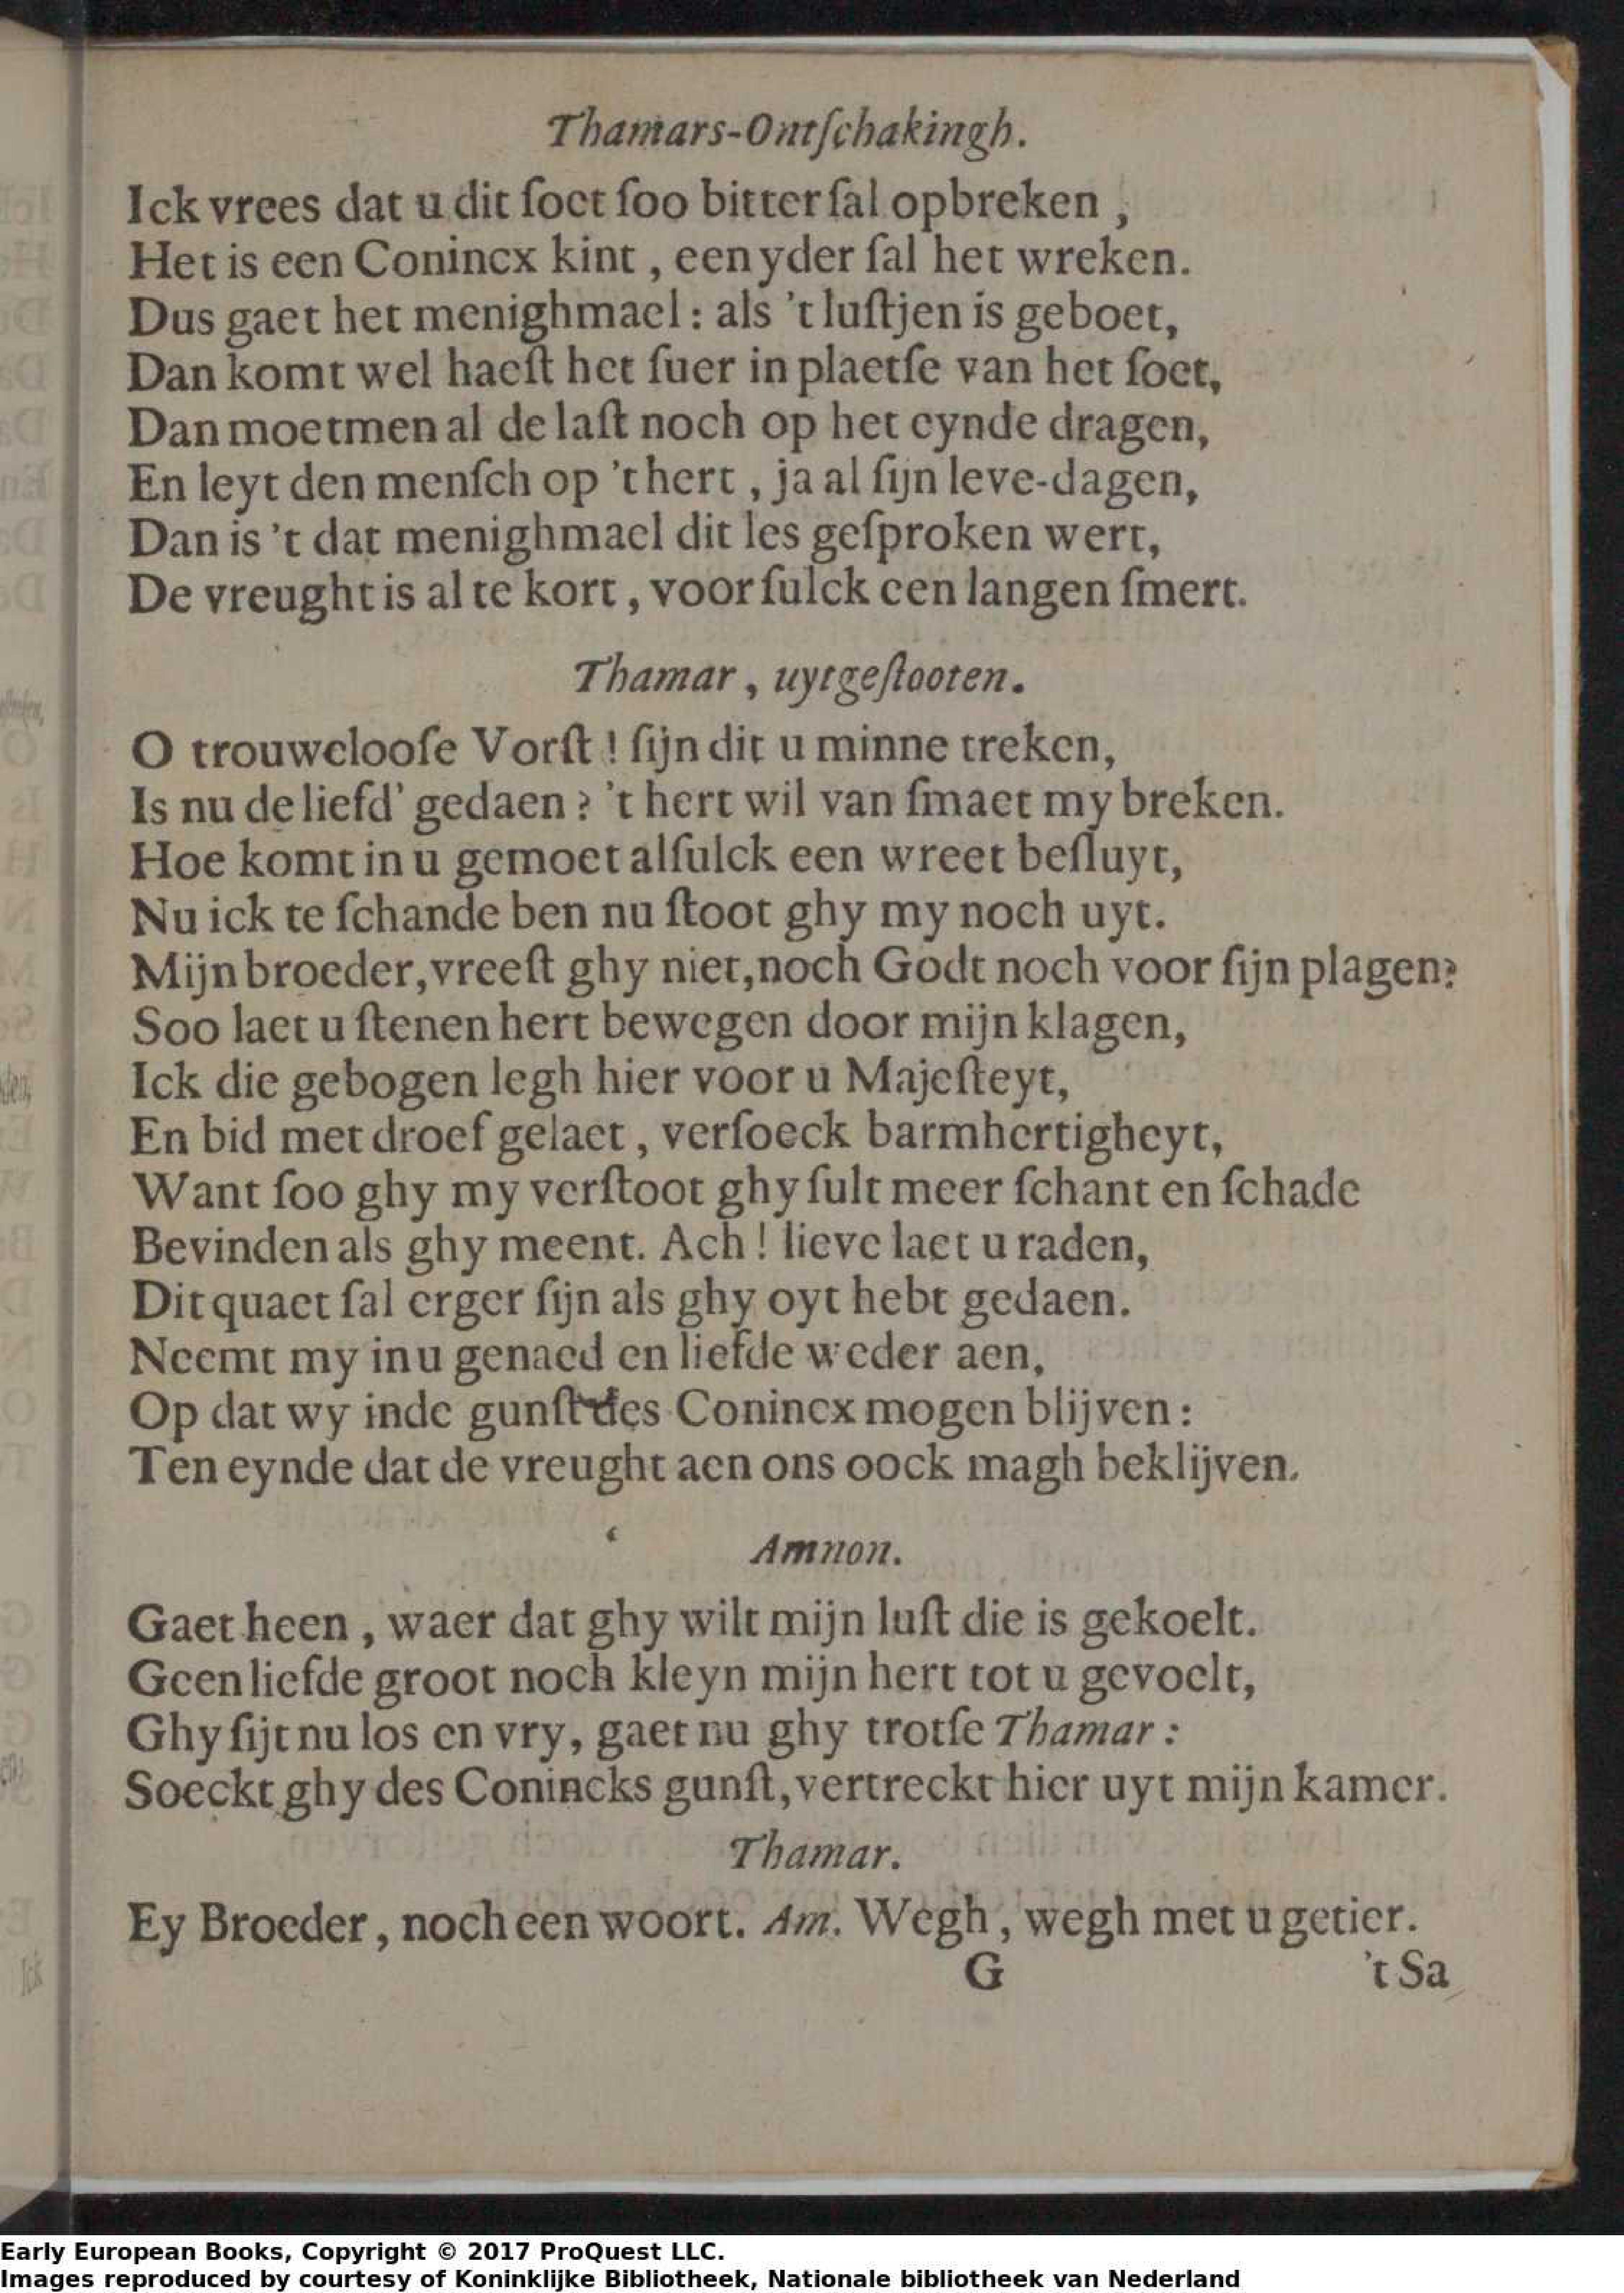 Thamars-Ontſchakingh.
Ick vrees dat u dit ſoet ſoo bitter ſal opbreken,
Het is een Conincx kint, een yder ſal het wreken.
Dus gaet het menighmael: als 't luſtjen is geboet,
Dan komt wel haeſt het ſuer in plaetſe van het ſoet,
Dan moetmen al de laſt noch op het eynde dragen,
En leyt den menſch op 't hert, ja al ſijn leve-dagen,
Dan is 't dat menighmael dit les geſproken wert,
De vreught is al te kort, voor ſulck een langen ſmert.
Thamar, uytgeſtooten.
O trouwelooſe Vorſt! ſijn dit u minne treken,
Is nu de liefd' gedaen? 't hert wil van ſmaet my breken.
Hoe komt in u gemoet alſulck een wreet beſluyt,
Nu ick te ſchande ben nu ſtoot ghy my noch uyt.
Mijn broeder, vreeſt ghy niet, noch Godt noch voor ſijn plagen?
Soo laet u ſtenen hert bewegen door mijn klagen,
Ick die gebogen legh hier voor u Majeſteyt,
En bid met droef gelaet, verſoeck barmhertigheyt,
Want ſoo ghy my verſtoot ghy ſult meer ſchant en ſchade
Bevinden als ghy meent. Ach! lieve laet u raden,
Dit quaet ſal erger ſijn als ghy oyt hebt gedaen.
Neemt my in u genaed en liefde weder aen,
Op dat wy inde gunſt des Conincx mogen blijven:
Ten eynde dat de vreught aen ons oock magh beklijven.
Amnon.
Gaet heen, waer dat ghy wilt mijn luſt die is gekoelt.
Geen liefde groot noch kleyn mijn hert tot u gevoelt,
Ghy ſijt nu los en vry, gaet nu ghy trotſe Thamar:
Soeckt ghy des Conincks gunſt, vertreckt hier uyt mijn kamer.
Thamar.
Ey Broeder, noch een woort. Am. Wegh, wegh met u getier.
G 't Sa
Early European Books, Copyright © 2017 ProQuest LLC.
Images reproduced by courtesy of Koninklijke Bibliotheek, Nationale bibliotheek van Nederland